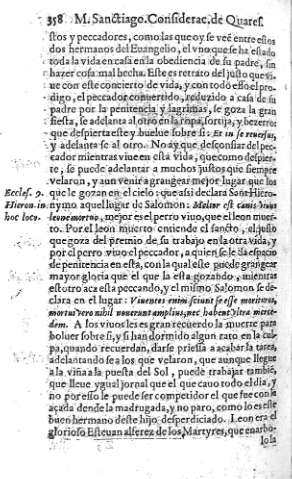 358 M. Sanctiago. Considerac. de Quares.
stos y peccadores, como las que oy se vee entre estos
dos hermanos del Euangelio, el vno que se ha estado
toda la vida en casa en la obediencia de su padre, sin
hazer cosa mal hecha. Este es retrato del justo que vi-
ue con este concierto de vida, y con todo esso el pro-
digo, el peccador conuertido, reduzido a casa de su
padre por la penitencia y lagrimas, se goza la gran
fiesta, se adelanta al otro en la ropa, sortija, y bezerro
que despierta este y buelue sobre si: Et in se reuersus,
y adelanta se al otro. No ay que desconfiar del pec-
cador mientras viue en esta vida, que como despier-
te, se puede adelantar a muchos justos que siempre
velaron, y aun venir a grangear mejor lugar que los
que le gozan en el cielo: que assi declara Sant Hiero-
nymo aquel lugar de Salomon: Melior est canis viuus
leone mortuo, mejor es el perro viuo, que el leon muer-
to. Por el leon muerto entiende el sancto, el justo
que goza del premio de su trabajo en la otra vida, y
por el perro viuo el peccador, a quien se le da espacio
de penitencia en esta, con la qual este puede grangear
mayor gloria que el que la esta gozando, mientras
estotro aca esta peccando, y el mismo Salomon se de-
clara en el lugar: Viuentes enim sciunt se esse morituros,
mortui vero nihil nouerunt amplius, nec habent vltra merce-
dem. A los viuos les es gran recuerdo la muerte para
boluer sobre si, y si han dormido algun rato en la cul-
pa, quando recuerdan, darse priessa a acabar la tarea,
adelantando se a los que velaron, que aunque llegue
a la viña a la puesta del Sol, puede trabajar tambiē,
que lleue ygual jornal que el que cauo todo el dia, y
no por esso le puede ser competidor el que fue con la
açada dende la madrugada, y no paro, como lo es este
buen hermano deste hijo desperdiciado. Leon era el
glorioso Esteuan alferez de los Martyres, que enarbo-
lo la
Eccles. 9.
Hieron. in
hoc loco.